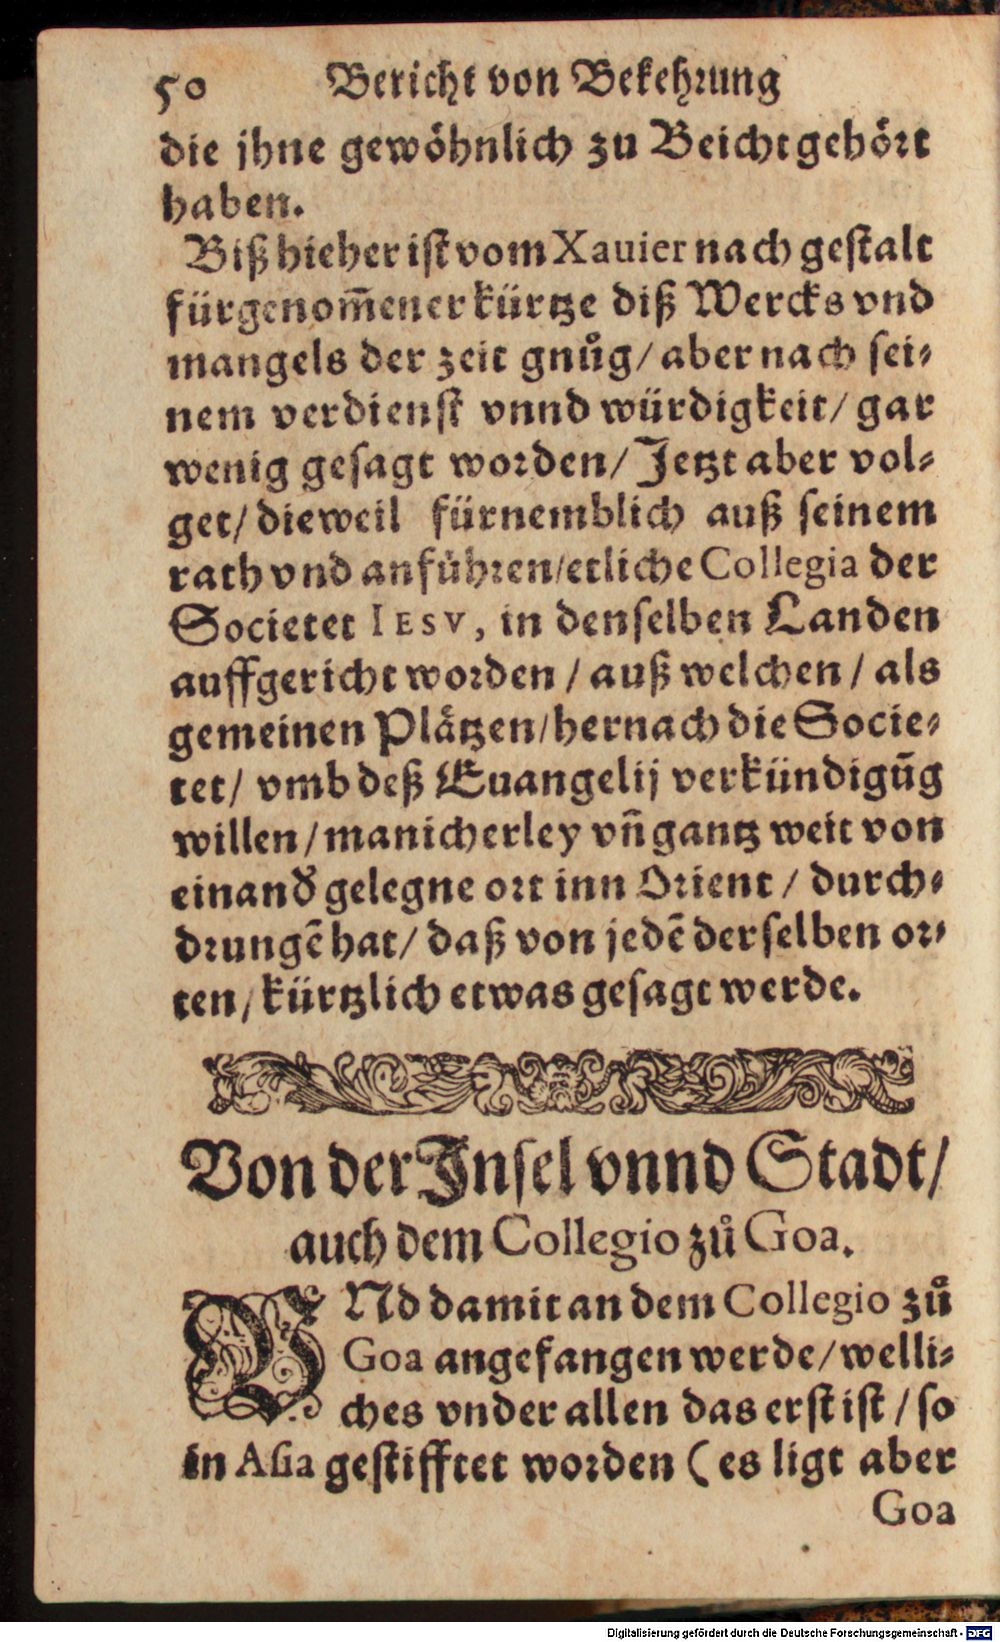 50 Bericht von Bekehrung
die jhne gewöhnlich zu Beicht gehört
haben.
Biß hieher ist vom Xauier nach gestalt
fürgenom̄ener kürtze diß Wercks vnd
mangels der zeit gnůg/ aber nach sei-
nem verdienst vnnd würdigkeit/ gar
wenig gesagt worden/ Jetzt aber vol-
get/ dieweil fürnemblich auß seinem
rath vnd anführen/etliche Collegia der
Societet IESV, in denselben Landen
auffgericht worden / auß welchen / als
gemeinen Plätzen/hernach die Socie-
tet/ vmb deß Euangelij verkündigūg
willen/manicherley vn̄ gantz weit von
einand̕ gelegne ort inn Orient / durch-
drungē hat/ daß von jedē derselben or-
ten/kürtzlich etwas gesagt werde.
Von der Insel vnnd Stadt/
auch dem Collegio zů Goa.
VNd damit an dem Collegio zů
Goa angefangen werde/welli-
ches vnder allen das erst ist / so
in Asia gestifftet worden (es ligt aber
Goa
Digitalisierung gefördert durch die Deutsche Forschungsgemeinschaft - DFG